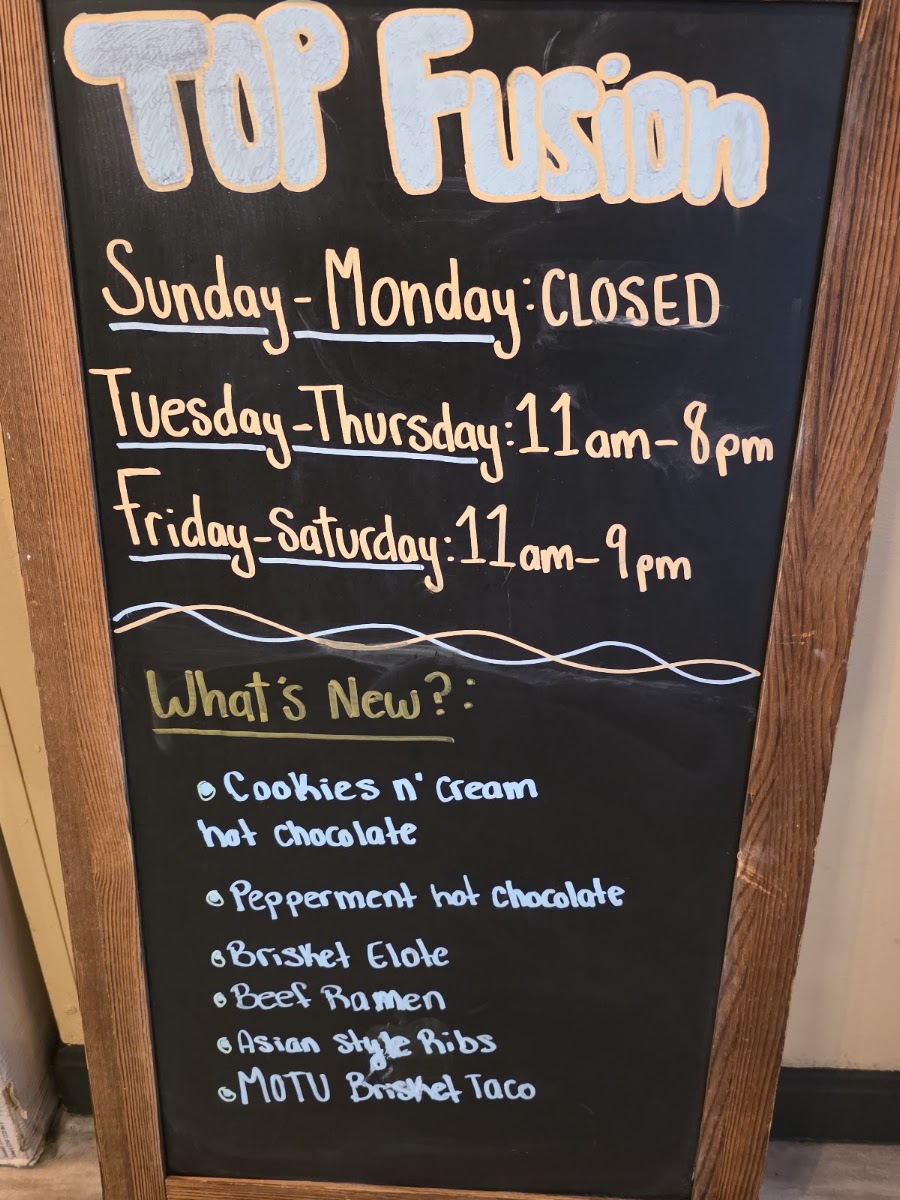 TOP Fusion
Sunday-Monday: CLOSED
Tuesday-Thursday: 11am-8pm
Friday-Saturday: 11am-9pm
What's New?:
• Cookies n' Cream
hot chocolate
• Pepperment hot chocolate
• Brisket Elote
• Beef Ramen
• Asian style Ribs
• MOTU Brisket Taco